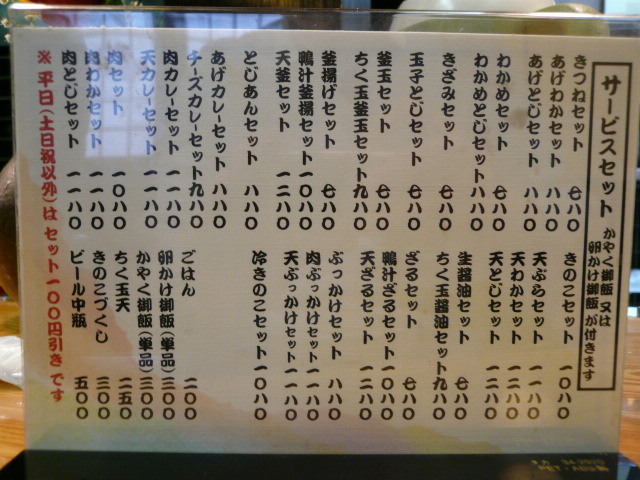 サービスセット かやく御飯 又は 卵かけ御飯 が付きます
きつねセット 七八〇
あげわかセット 八八〇
あげとじセット 八八〇
わかめセット 七八〇
わかめとじセット 八八〇
きざみセット 七八〇
玉子とじセット 七八〇
釜玉セット 七八〇
ちく玉釜玉セット 九八〇
釜揚げセット 七八〇
鴨汁釜揚セット 一〇八〇
天釜セット 一二八〇
とじあんセット 八八〇
あげカレーセット 八八〇
チーズカレーセット 九八〇
肉カレーセット 一一八〇
天カレーセット 一一八〇
肉セット 一〇八〇
肉わかセット 一一八〇
肉とじセット 一一八〇
きのこセット 一〇八〇
天ぷらセット 一一八〇
天わかセット 一二八〇
天とじセット 一二八〇
生醤油セット 七八〇
ちく玉醤油セット 九八〇
ざるセット 七八〇
鴨汁ざるセット 一〇八〇
天ざるセット 一二八〇
ぶっかけセット 八八〇
肉ぶっかけセット 一一八〇
天ぶっかけセット 一一八〇
冷きのこセット 一〇八〇
ごはん 二〇〇
卵かけ御飯(単品) 三〇〇
かやく御飯(単品) 三〇〇
ちく玉天 二五〇
きのこづくし 三〇〇
ビール中瓶 五〇〇
※ 平日(土日祝以外)は セット一〇〇円引き です